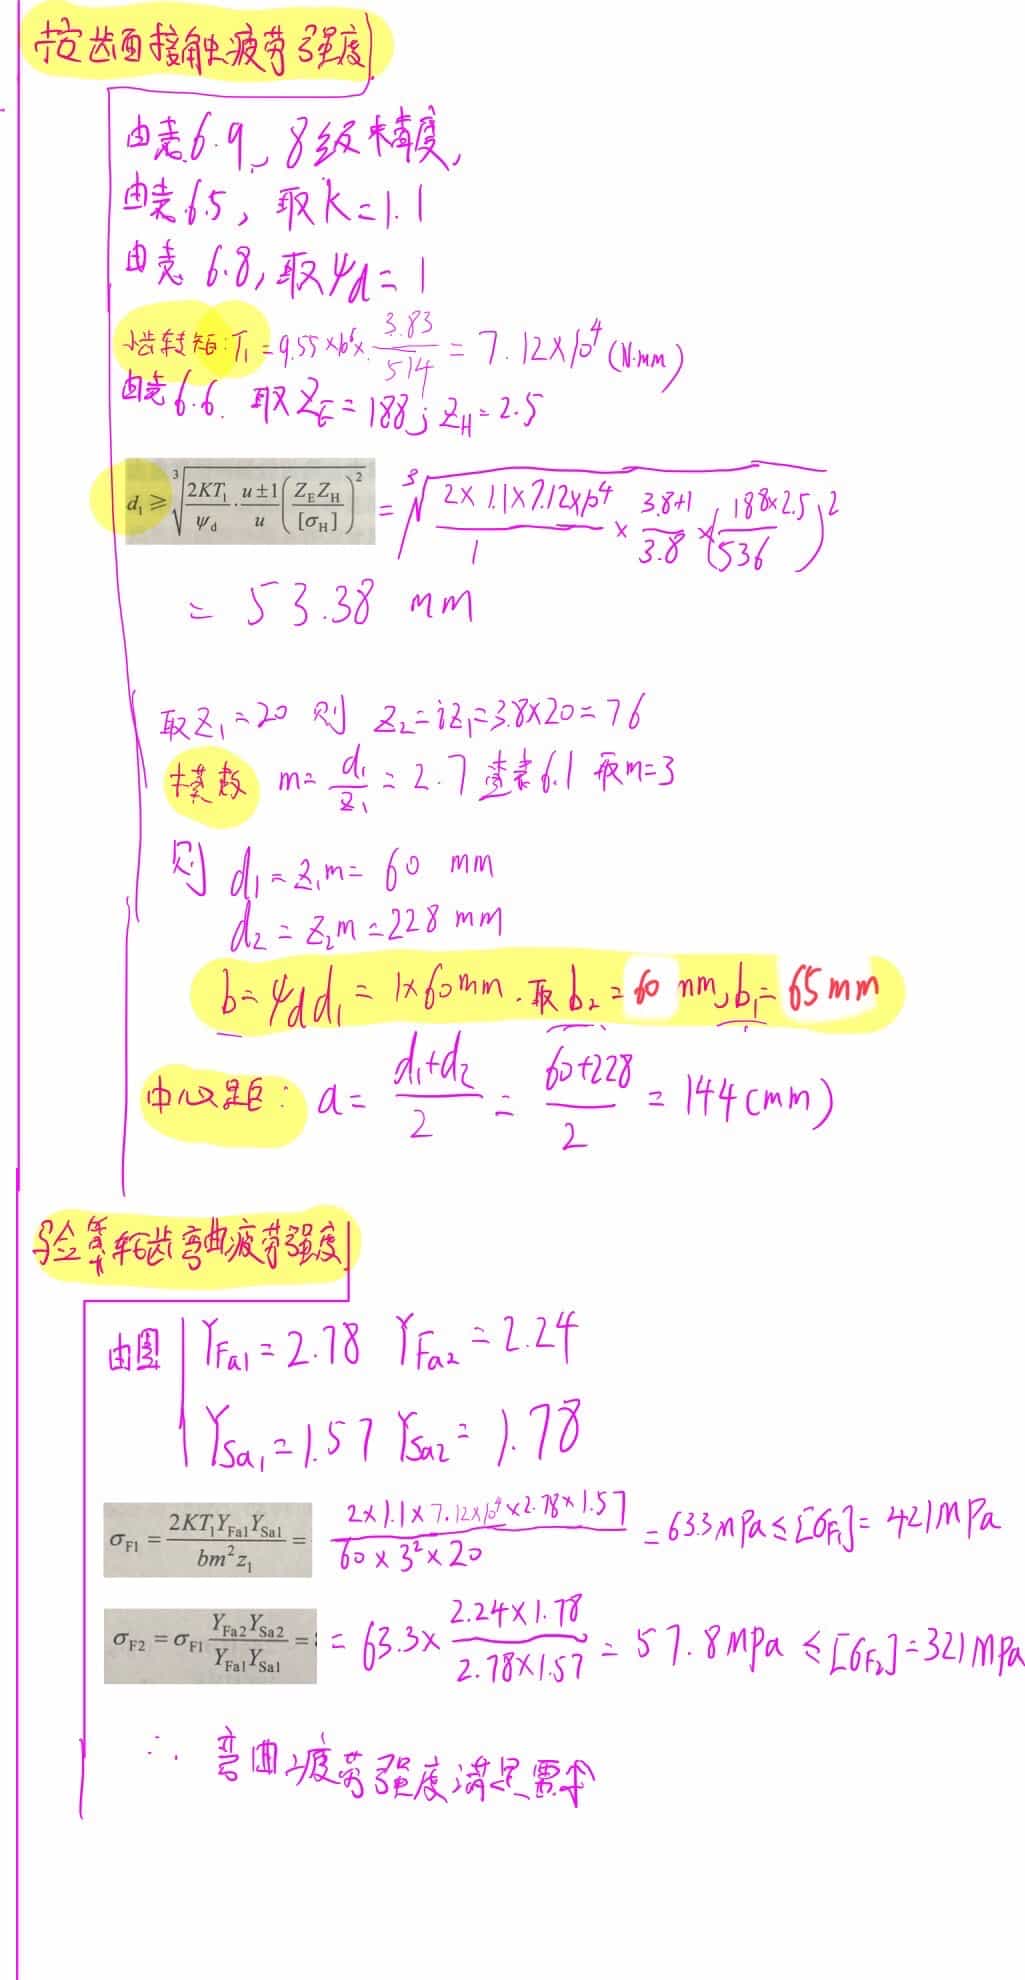 按齿面接触疲劳强度
由表6.9、8级精度,
由表6.5, 取k=1.1
由表 6.8,取ψd=1
小齿转矩: T₁=9.55×10⁶×3.83/514=7.12×10⁴(N·mm)
由表6.6. 取ZE=188; ZH=2.5
d₁≥∛(2KT₁/ψd·(u±1)/u(ZEZH/[σH])²)=∛(2×1.1×7.12×10⁴/1×(3.8+1)/3.8×(188×2.5/536)²)
= 53.38 mm
取Z₁=20 则 Z₂=iZ₁=3.8×20=76
模数 m=d₁/Z₁=2.7 查表6.1 取m=3
则 d₁=Z₁m=60 mm
d₂=Z₂m=228mm
b=ψdd₁=1×60mm.取b₂=60mm,b₁=65mm
中心距: a=(d₁+d₂)/2=(60+228)/2=144(mm)
验算轮齿弯曲疲劳强度
由图 YFa1=2.78 YFa2=2.24
YSa1=1.57 YSa2=1.78
σF1=2KT₁YFa1YSa1/bm²z₁=2×1.1×7.12×10⁴×2.78×1.57/60×3²×20=63.3MPa≤[σF1]=421MPa
σF2=σF1 YFa2YSa2/YFa1YSa1==63.3×2.24×1.78/2.78×1.57=57.8MPa≤[σF2]=321MPa
∴ 弯曲疲劳强度满足需求